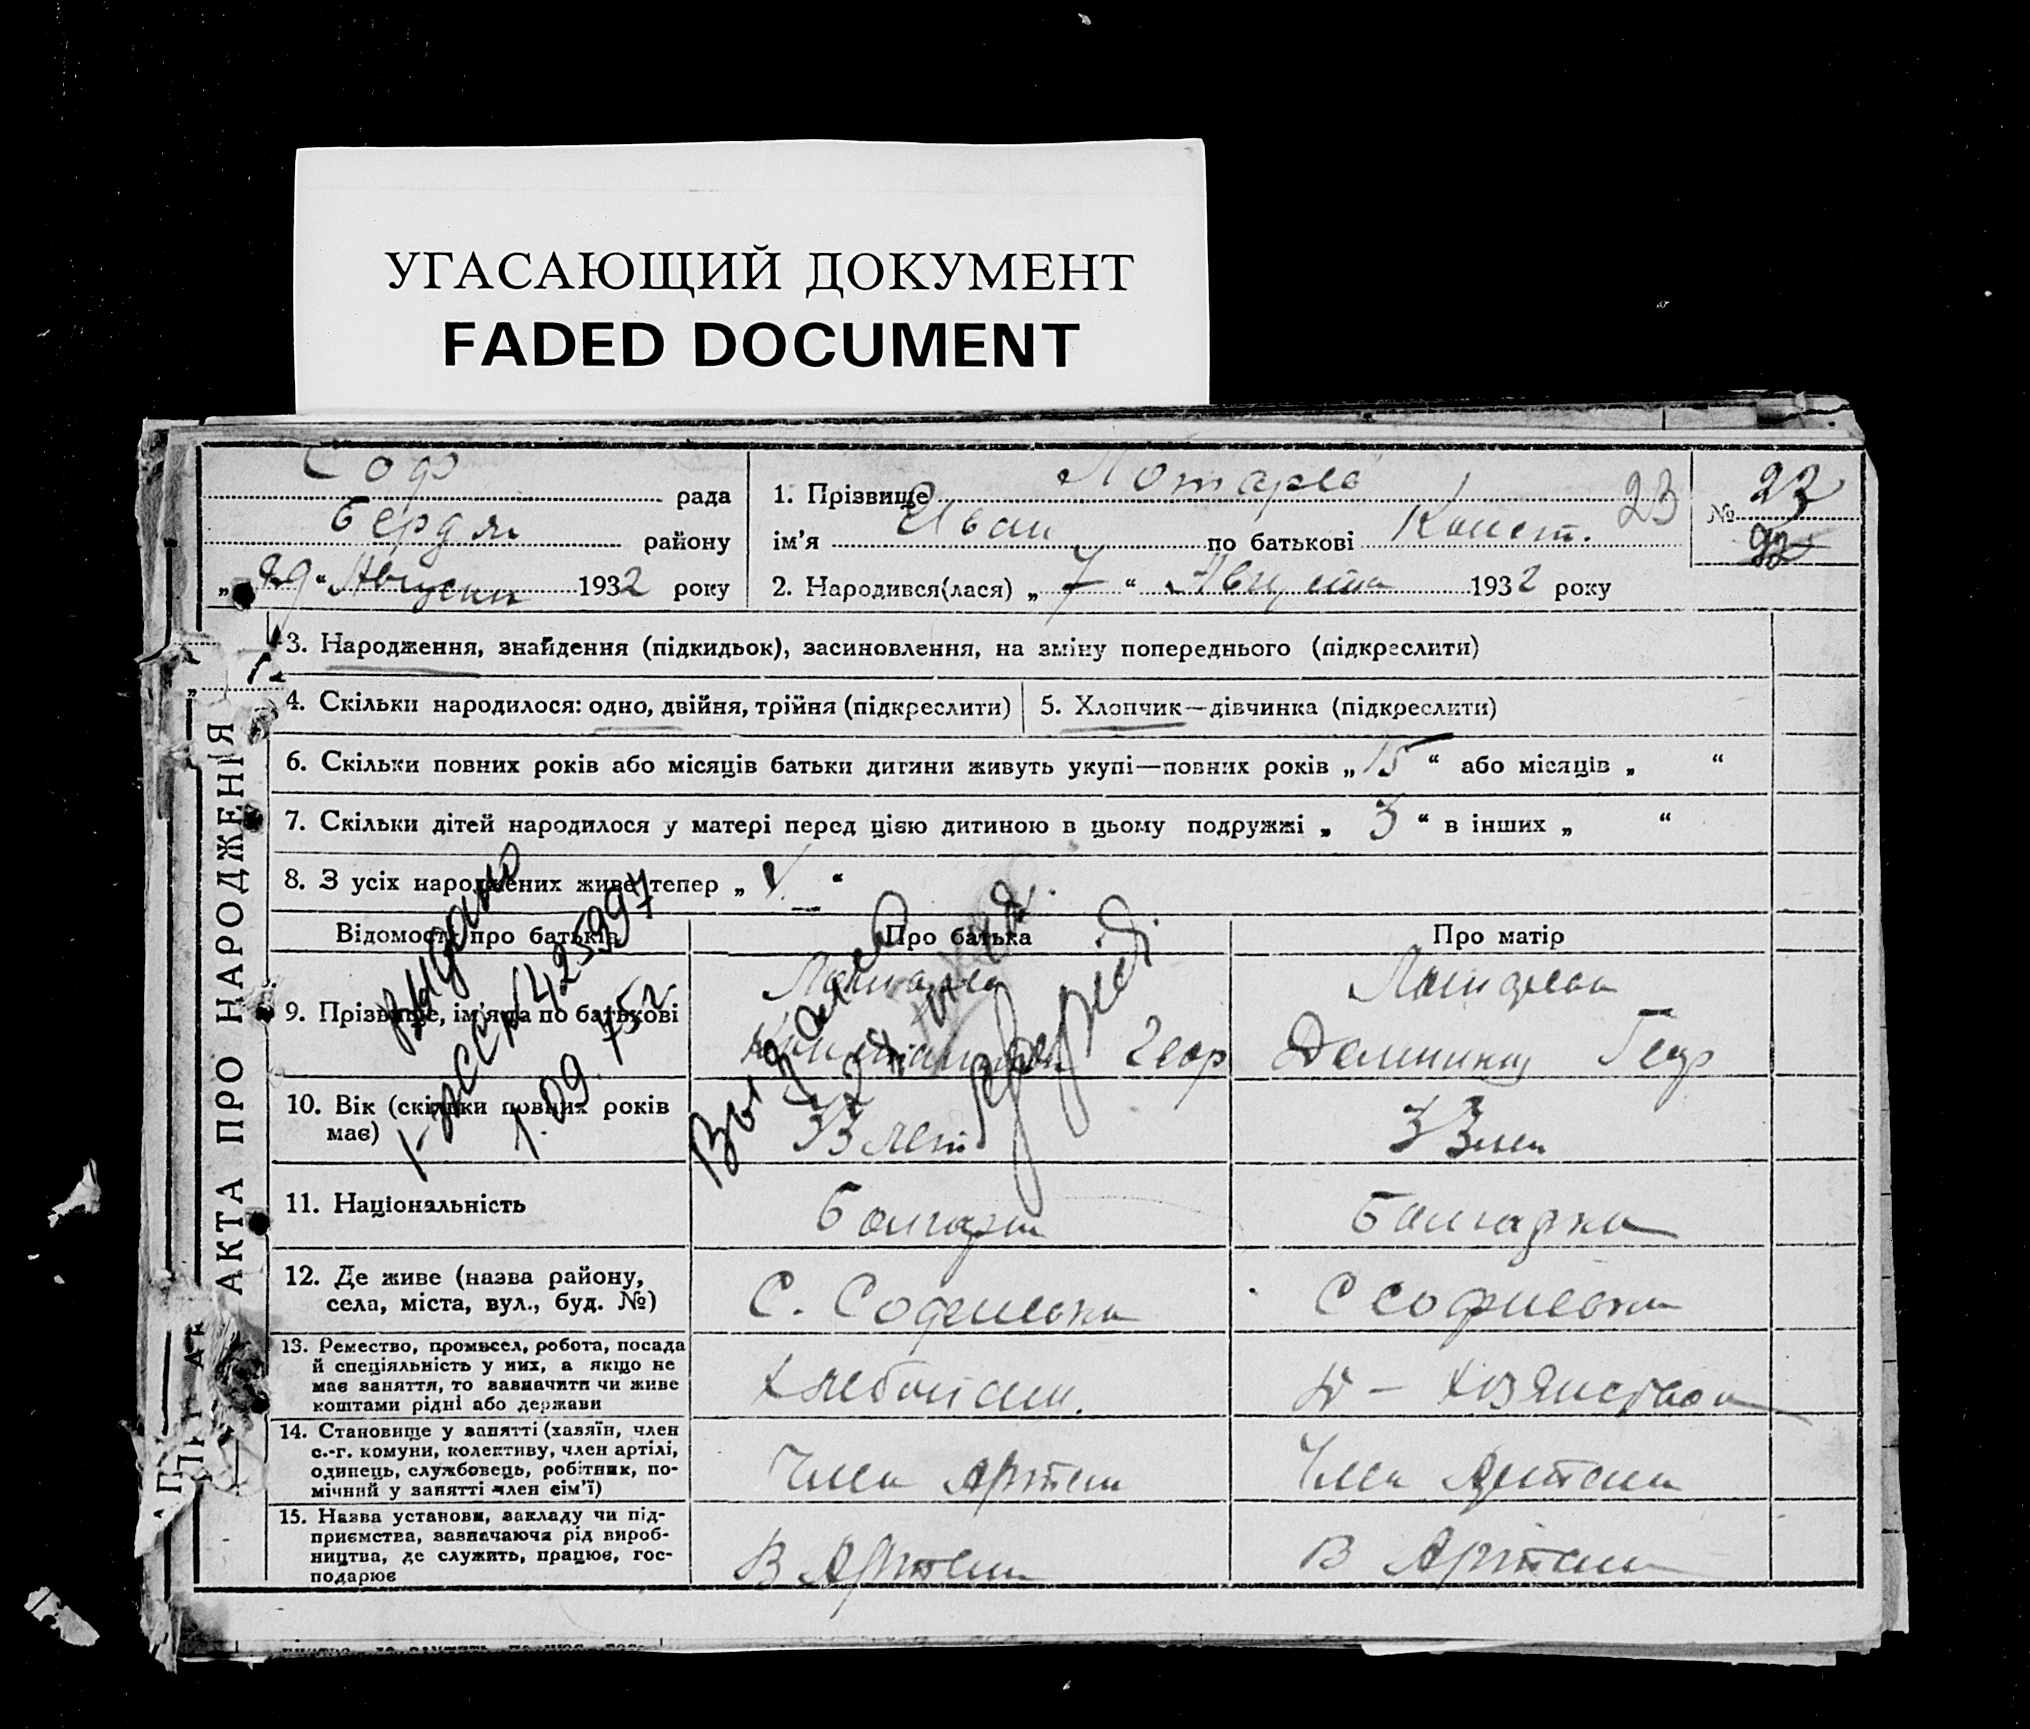 УГАСАЮЩИЙ ДОКУМЕНТ
FADED DOCUMENT
Соф рада
Бердян району
„29“ Августа 1932 року
1. Прізвище Потарев 23
ім'я Иван по батькові Конст.
2. Народився(лася) „7“ Августа 1932 року
№ 23
АКТА ПРО НАРОДЖЕННЯ
3. Народження, знайдення (підкидьок), засиновлення, на зміну попереднього (підкреслити)
4. Скільки народилося: одно, двійня, трійня (підкреслити)
5. Хлопчик—дівчинка (підкреслити)
6. Скільки повних років або місяців батьки дитини живуть укупі—повних років „15“ або місяців „ “
7. Скільки дітей народилося у матері перед цією дитиною в цьому подружжі „3“ в інших „ “
8. З усіх народжених живе тепер „ “
Відомості про батьків
Про батька
Про матір
9. Прізвище, ім'я та по батькові
Геор
Геор
10. Вік (скільки повних років
має)
33 лет
33 лет
11. Національність
Болгарин
Болгарка
12. Де живе (назва району,
села, міста, вул., буд. №)
С. Софиевка
С Софиевка
13. Ремество, промисел, робота, посада
й спеціяльність у них, а якщо не
має заняття, то зазначити чи живе
коштами рідні або держави
Хлебопаш.
14. Становище у занятті (хазяїн, член
с.-г. комуни, колективу, член артілі,
одинець, службовець, робітник, по-
мічний у занятті член сім'ї)
Член Артели
Член Артели
15. Назва установи, закладу чи під-
приємства, зазначаючи рід вироб-
ництва, де служить, працює, гос-
подарює
В Артели
В Артели
Выдано
1.09.75г.